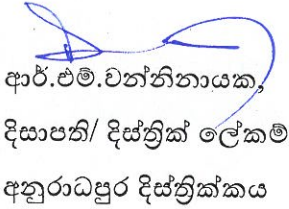 ආර්.එම්.වන්නිනායක,
දිසාපති/ දිස්ත්‍රික් ලේකම්
අනුරාධපුර දිස්ත්‍රික්කය